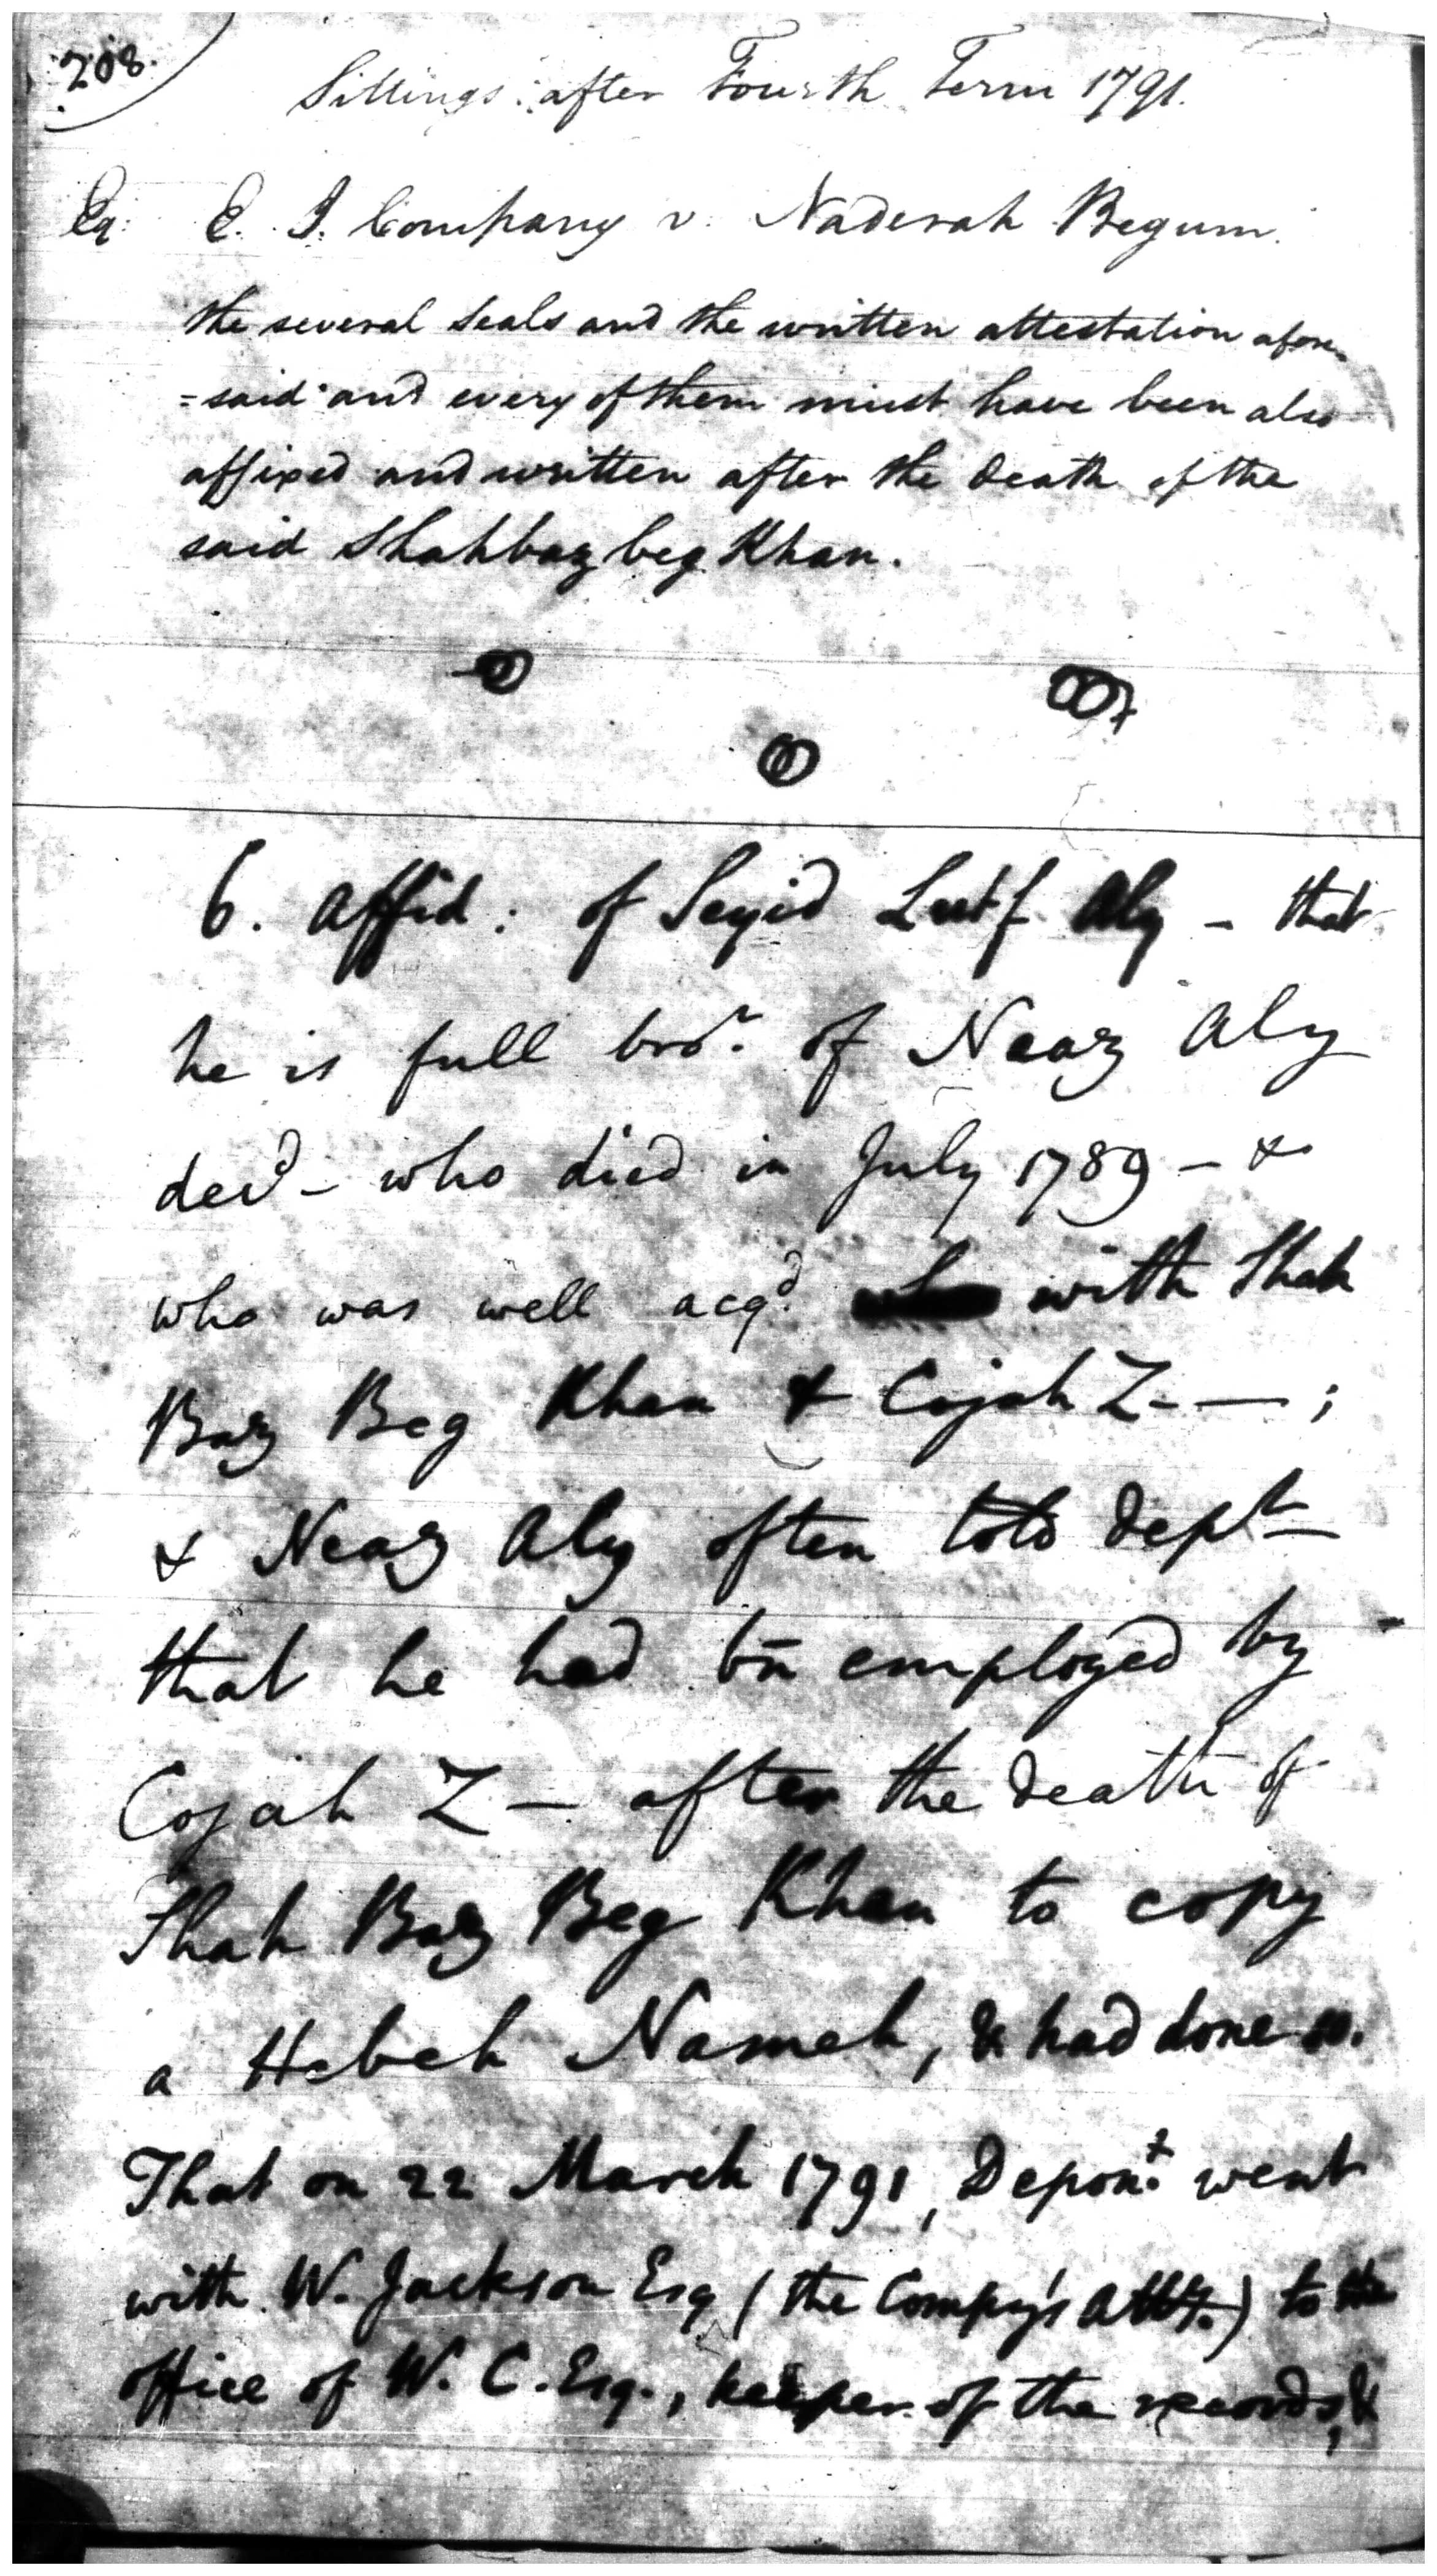 208.
Sittings after Fourth Term 1791.
Eq. E. I. Company v. Naderah Begum.
the several seals and the written attestation afore-
=said and every of them must have been also
affixed and written after the death of the
said Shahbaz beg Khan.
6. Affid: of Seyid Lutf Aly - that
he is full bror. of Neaz Aly
decd - who died in July 1789 - &
who was well acqd. with Shah
Baz Beg Khan & Cojah Z-- ;
& Neaz Aly often told Dept
that he had bn employed by
Cojah Z - after the death of
Shah Baz Beg Khan to copy
a Hebeh Nameh, & had done so.
That on 22 March 1791, Depont. went
with W. Jackson Esq (the Compy's Atty.) to the
office of W. C. Esq., keeper of the records, &